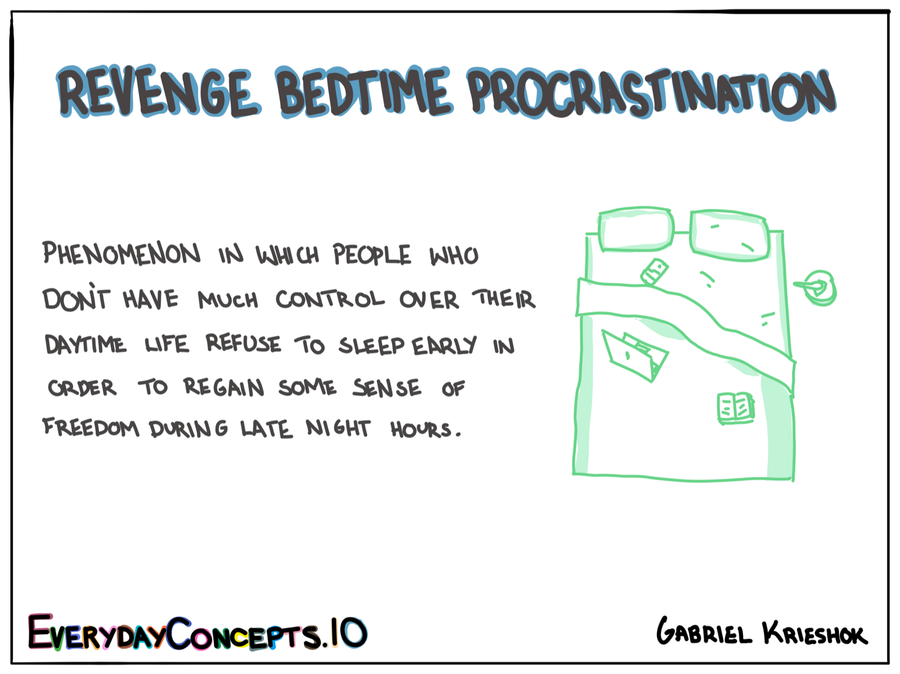 REVENGE BEDTIME PROCRASTINATION
PHENOMENON IN WHICH PEOPLE WHO
DON'T HAVE MUCH CONTROL OVER THEIR
DAYTIME LIFE REFUSE TO SLEEP EARLY IN
ORDER TO REGAIN SOME SENSE OF
FREEDOM DURING LATE NIGHT HOURS.
EVERYDAYCONCEPTS.IO
GABRIEL KRIESHOK